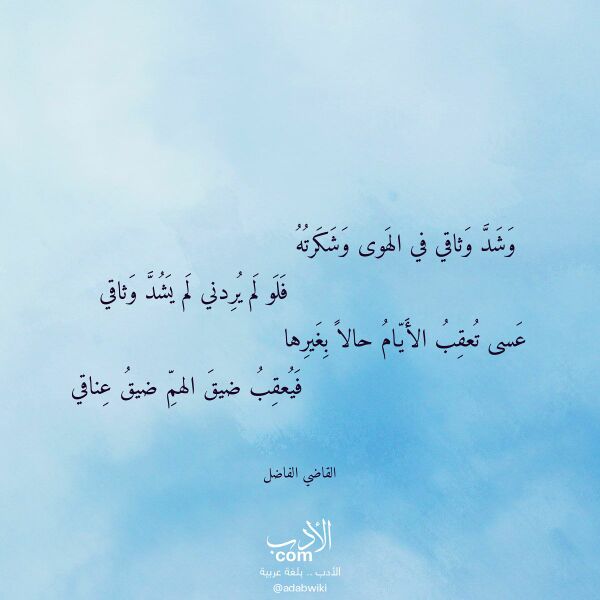 وَشَدَّ وَثاقي في الهَوى وَشَكَرتُهُ
فَلَو لَم يُرِدني لَم يَشُدَّ وَثاقي
عَسى تُعقِبُ الأَيّامُ حالاً بِغَيرِها
فَيُعقِبُ ضيقَ الهمِّ ضيقُ عِناقي
القاضي الفاضل
الأدب
com
الأدب .. بلغة عربية
@adabwiki